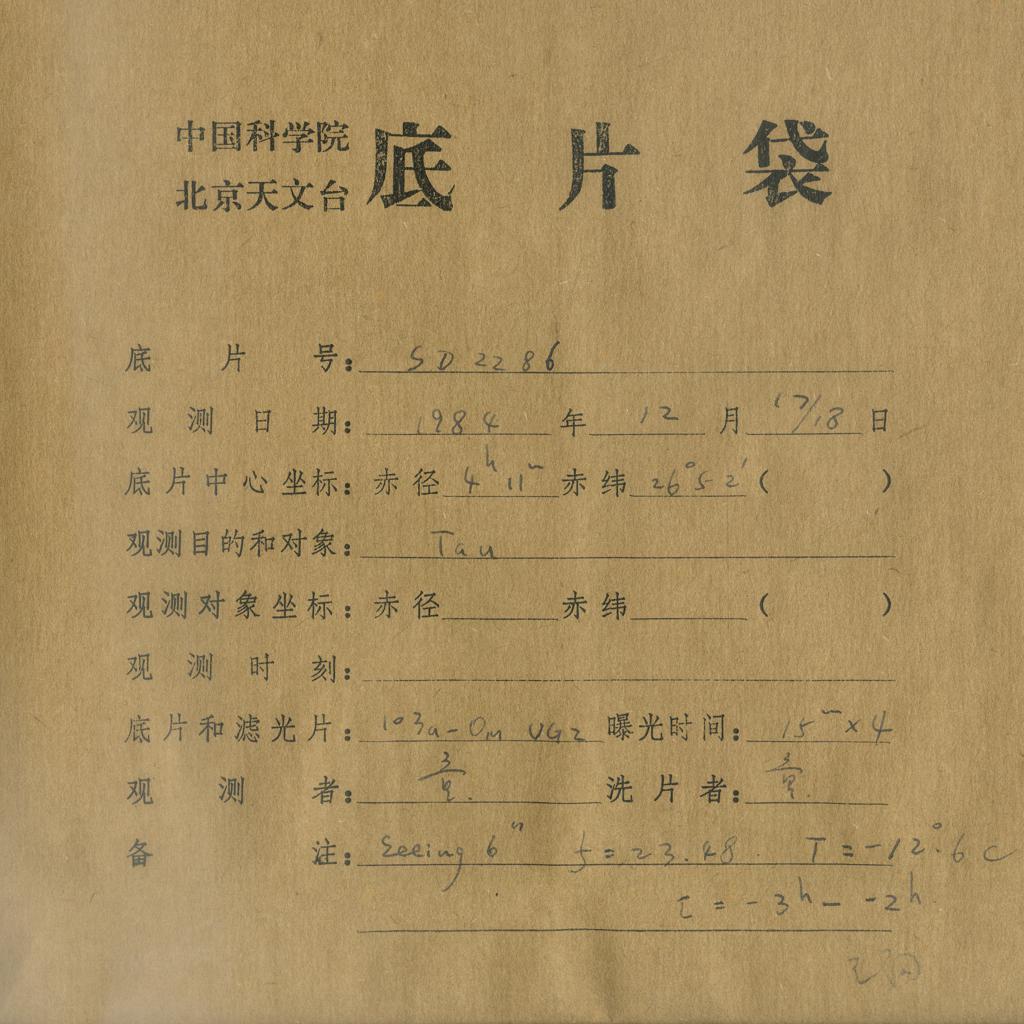 中国科学院
北京天文台
底片袋
底片号: SD2286
观测日期: 1984年12月17/18日
底片中心坐标: 赤径4ʰ11ᵐ赤纬26°52′( )
观测目的和对象: Tau
观测对象坐标: 赤径 赤纬 ( )
观测时刻:
底片和滤光片: 103a-O UG2 曝光时间: 15ᵐ×4
观测者: 洗片者:
备注: Seeing 6″ =23.48 T=-12°.6C
t=-3ʰ— -2ʰ